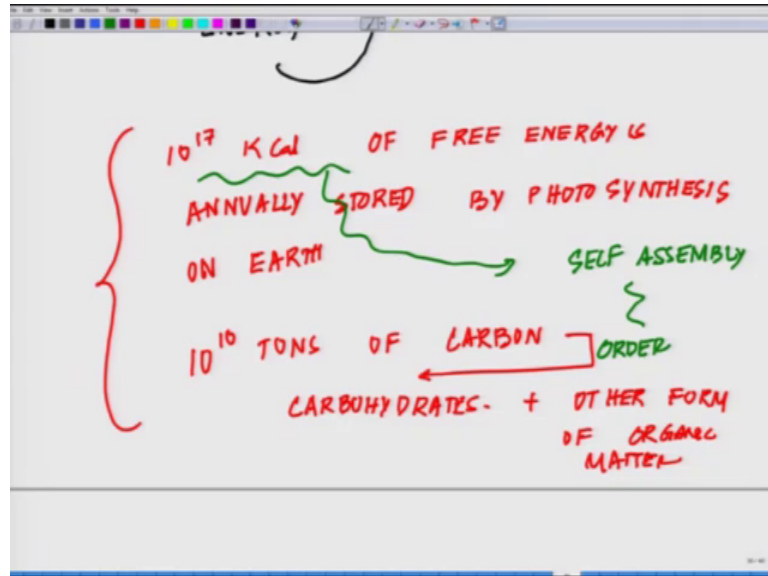 10^17 K Cal OF FREE ENERGY IS
ANNUALLY STORED BY PHOTO SYNTHESIS
ON EARTH
SELF ASSEMBLY
ORDER
10^10 TONS OF CARBON
CARBOHYDRATES. + OTHER FORM
OF ORGANIC
MATTER